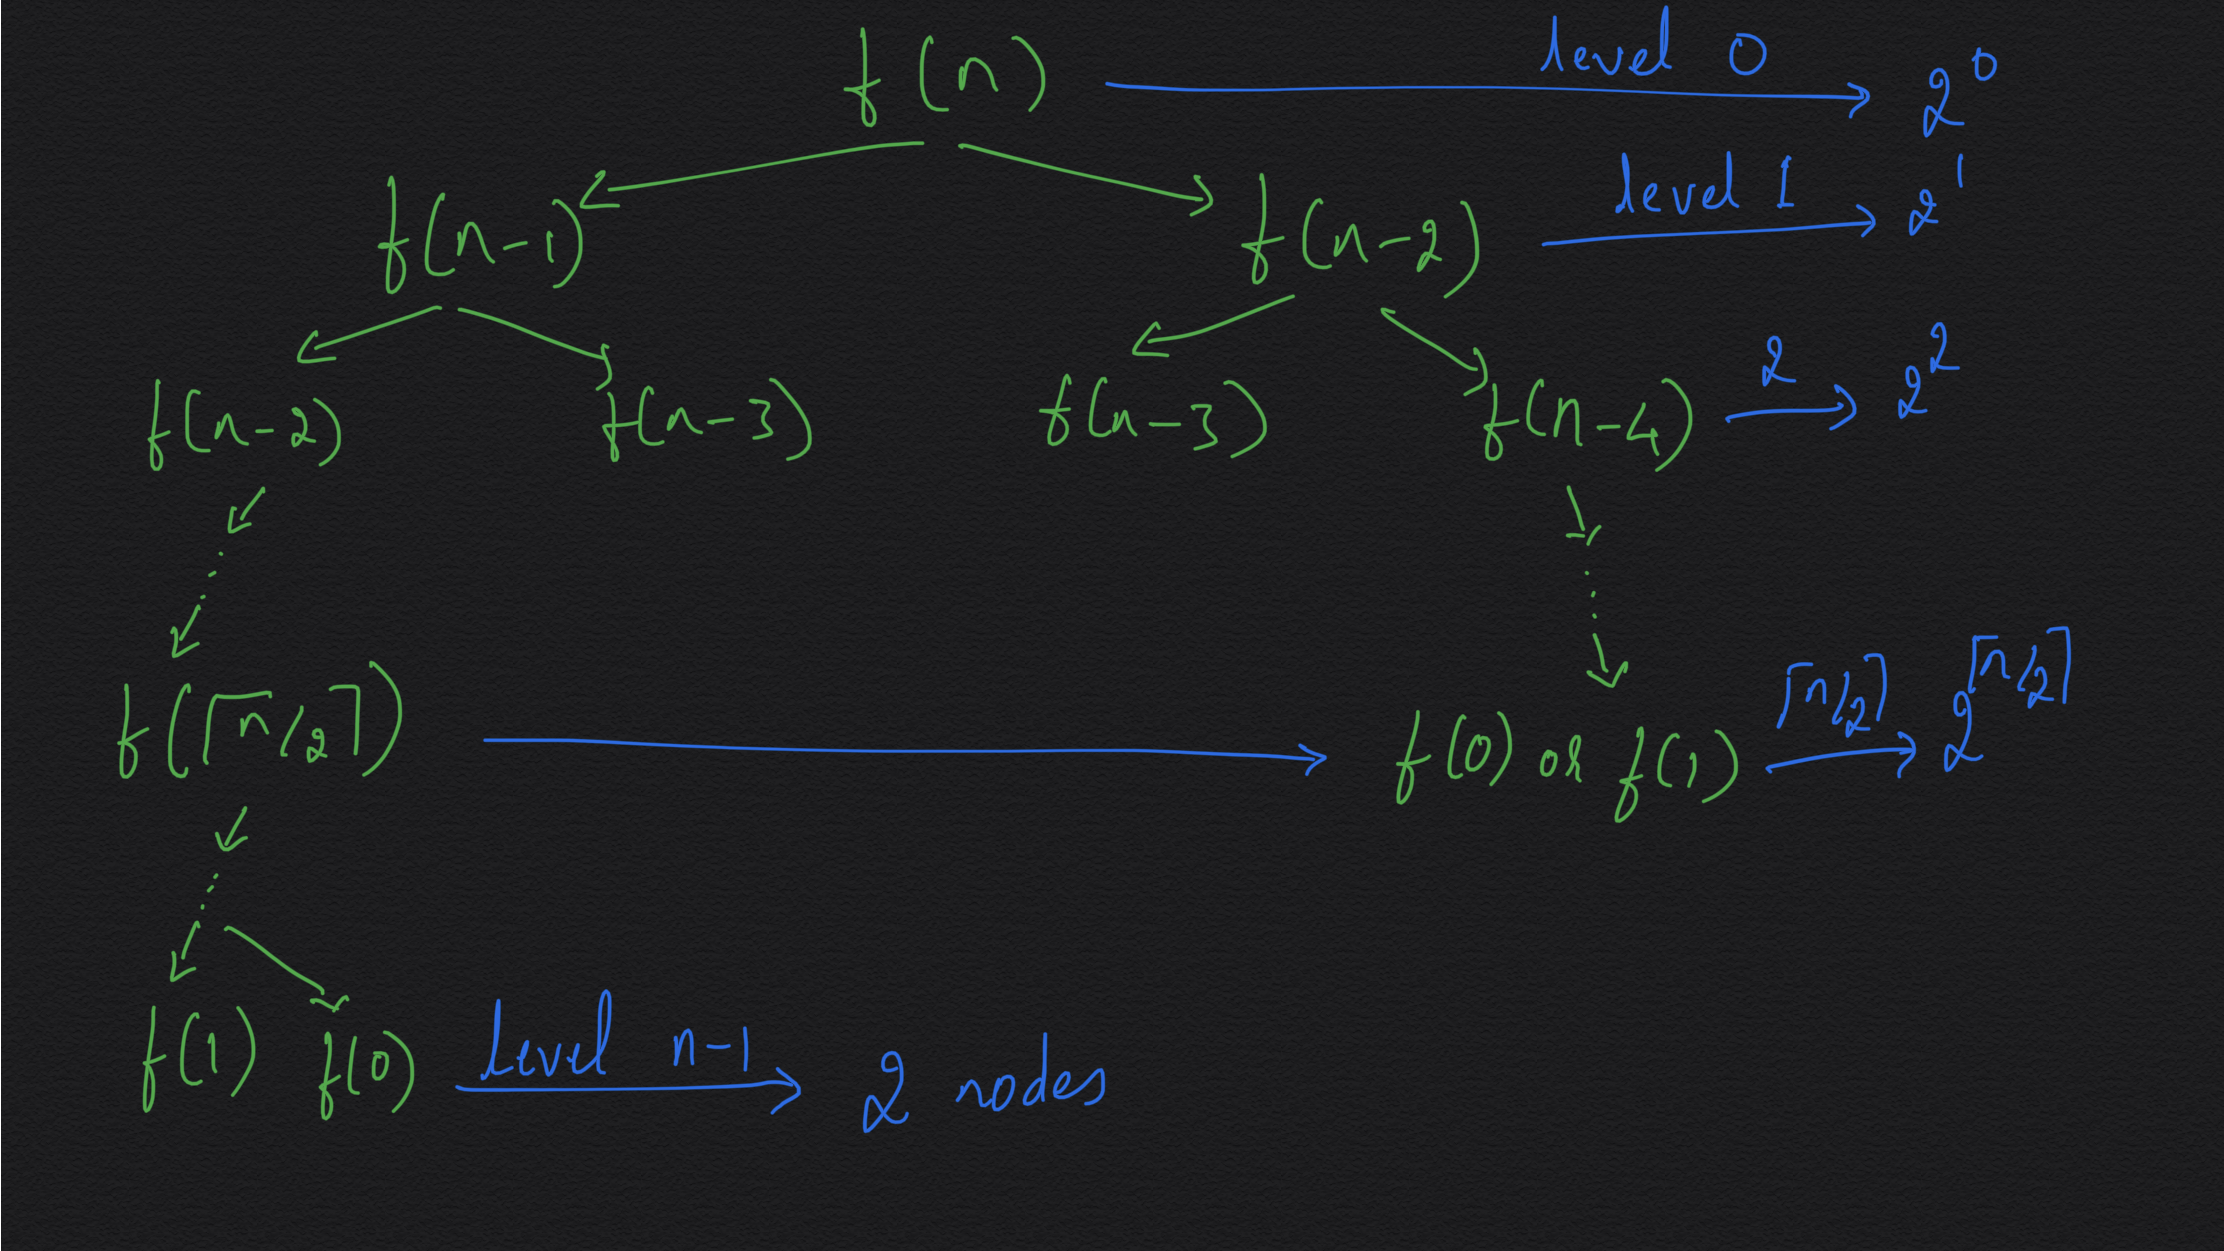 f(n) level 0 2^0
f(n-1) f(n-2) level 1 2^1
f(n-2) f(n-3) f(n-3) f(n-4) 2 2^2
f(⌈n/2⌉) f(0) or f(1) ⌈n/2⌉ 2^⌈n/2⌉
f(1) f(0) level n-1 2 nodes